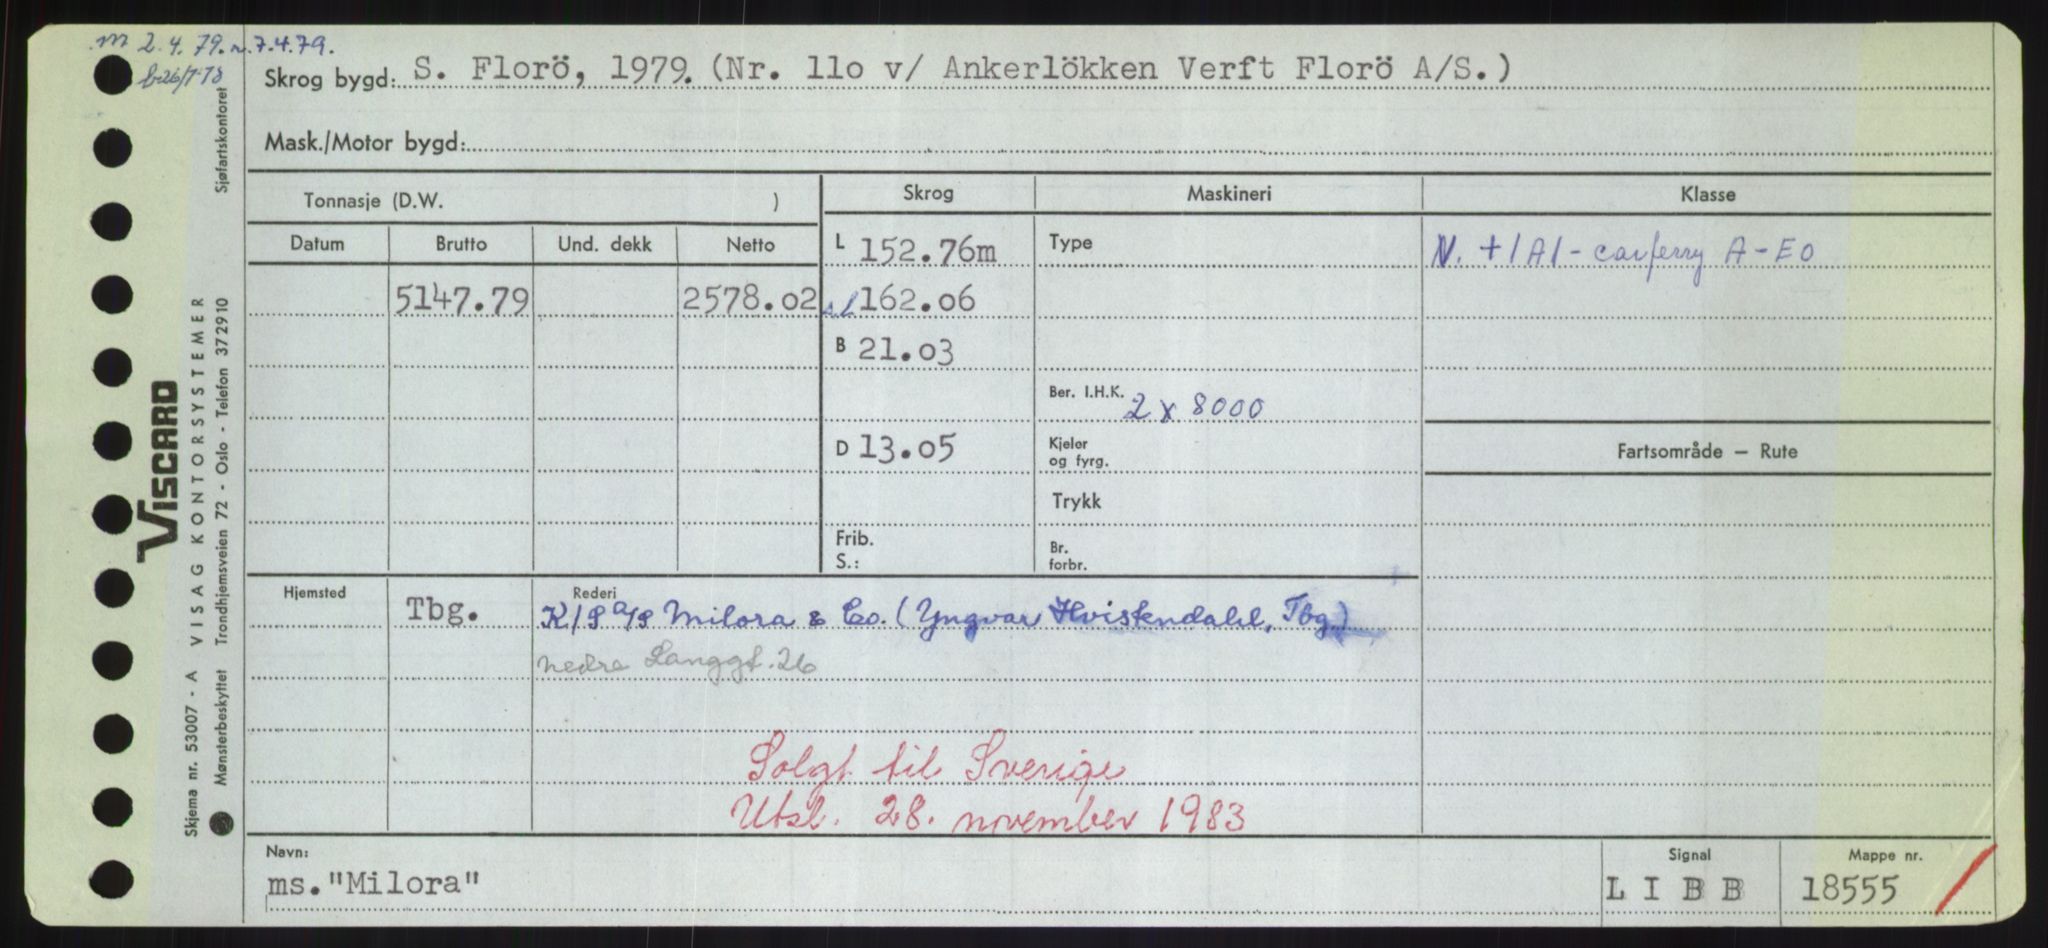 m 2.4.79. n. 7.4.79.
b 26/7-78
Skrog bygd: S. Florö, 1979. (Nr. 11o v/ Ankerlökken Verft Florö A/S.)
Mask./Motor bygd:
Tonnasje (D.W. )
Skrog
Maskineri
Klasse
Datum
Brutto
Und. dekk
Netto
L 152.76m
Type
N. +1A1 - carferry A-EO
5147.79
2578.o2
s.l 162.o6
B 21.o3
Ber. I.H.K. 2 x 8000
D 13.o5
Kjeler
og fyrg.
Fartsområde — Rute
Trykk
Frib.
S.:
Br.
forbr.
Hjemsted
Tbg.
Rederi
K/S A/S Milora & Co. (Yngvar Hvistendahl, Tbg.)
nedre Langgt. 26
Solgt til Sverige
Utsl. 28. november 1983
Navn:
ms. "Milora"
Signal
L I B B
Mappe nr.
18555
VISCARD
VISAG KONTORSYSTEMER
Sjøfartskontoret
Trondhjemsveien 72 - Oslo - Telefon 372910
Skjema nr. 53007 - A
Mønsterbeskyttet